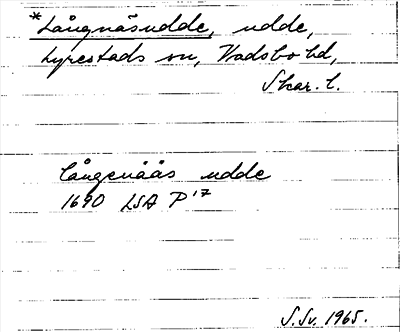 *Långnäsudde, udde,
Lyrestads sn, Vadsbo hd,
Skar. l.
Långenääs udde
1690 LSA P 17
S.Sv. 1965.